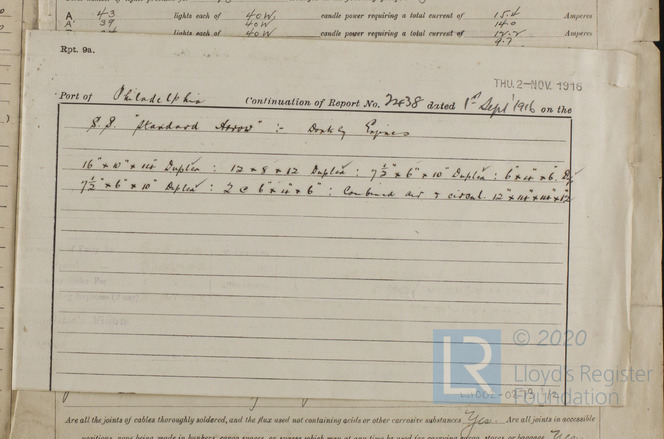 A 43 lights each of 40W. candle power requiring a total current of 15.4 Amperes
A² 39 40W 14.0
lights each of 40W candle power requiring a total current of 12.2 Amperes
9.7
Rpt. 9a.
THU. 2-NOV. 1916
Port of Philadelphia Continuation of Report No. 2438 dated 1st Sept 1916 on the
S.S. "Standard Arrow" :- Donkey Engines
16" x 10" x 14" Duplex : 12 x 8 x 12 Duplex : 7½" x 6" x 10" Duplex : 6" x 4" x 6"
7½" x 6" x 10" Duplex : 2 @ 6" x 4" x 6" : Combined air & circul. 12" x 14" x 14" x 12"
LR © 2020
Lloyd's Register
Foundation
Are all the joints of cables thoroughly soldered, and the flux used not containing acids or other corrosive substances Yes. Are all joints in accessible